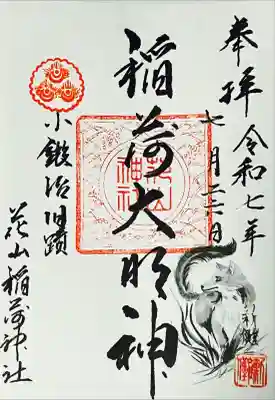 奉拝 令和七年
七月二六日
稲荷大明神
花山神社
小鍛冶旧蹟
花山稲荷神社